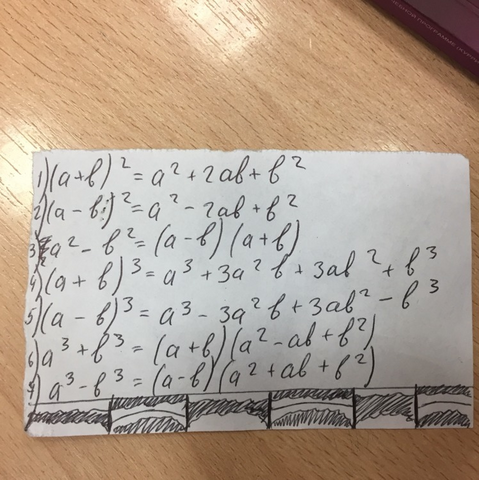 1) (a+b)² = a² + 2ab + b²
2) (a - b)² = a² - 2ab + b²
3) a² - b² = (a - b) (a + b)
4) (a + b)³ = a³ + 3a²b + 3ab² + b³
5) (a - b)³ = a³ - 3a²b + 3ab² - b³
6) a³ + b³ = (a + b) (a² - ab + b²)
7) a³ - b³ = (a - b) (a² + ab + b²)